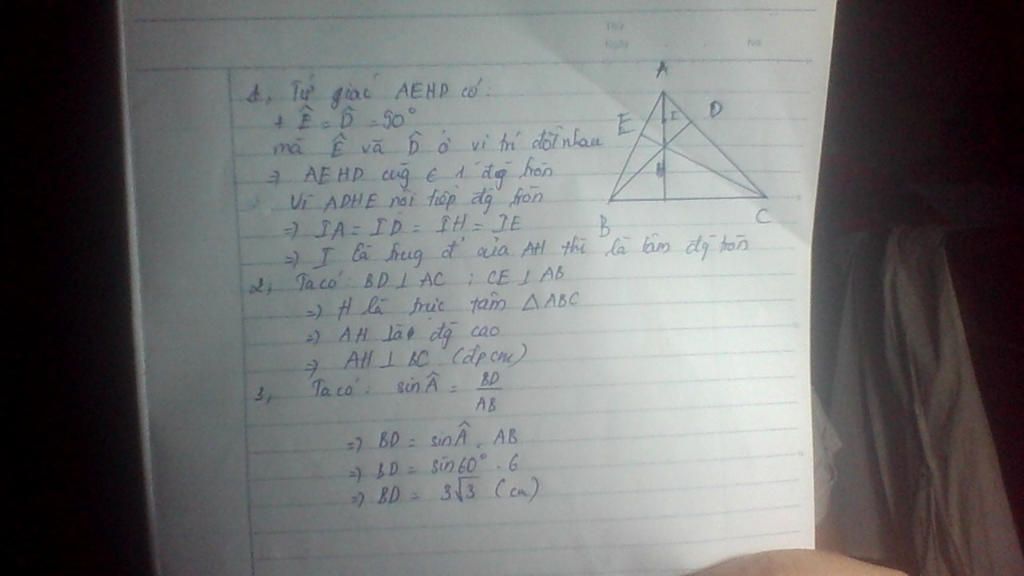 Thứ
Ngày . . No
1, Tứ giác AEHD có:
+ Ê = D̂ = 90°
mà Ê và D̂ ở vi trí đối nhau
=> AEHD cùg ∈ 1 đg tròn
Vì ADHE nôi tiếp đg tròn
=> IA = ID = IH = IE
=> I là trug đ' của AH thì là tâm đg tròn
2, Ta có: BD ⊥ AC ; CE ⊥ AB
=> H là trưc tâm △ABC
=> AH là đg cao
=> AH ⊥ BC (đpcm)
3, Ta có: sin Â = BD
AB
=> BD = sin Â . AB
=> BD = sin60° . 6
=> BD = 3√3 (cm)
A
E I D
H
B C